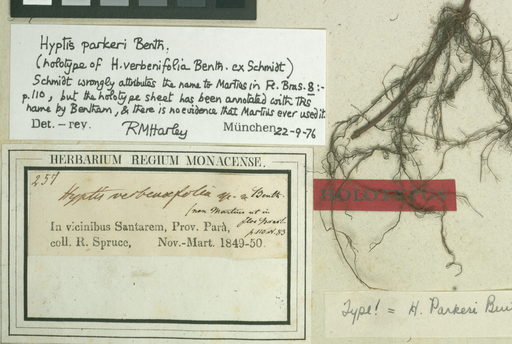 Hyptis parkeri Benth.
(holotype of H. verbenifolia Benth. ex Schmidt)
Schmidt wrongly attributes the name to Martius in Fl. Bras. 8:-
p.110, but the holotype sheet has been annotated with this
name by Bentham, & there is no evidence that Martius ever used it
Det. – rev. RMHarley München 22-9-76
HERBARIUM REGIUM MONACENSE.
257
Hyptis verbenæfolia Benth.
(non Martius ut in
flor. Brasil.
p. 110. N. 83
In vicinibus Santarem, Prov. Parà,
coll. R. Spruce, Nov.-Mart. 1849-50.
HOLOTYPUS
Type! = H. Parkeri